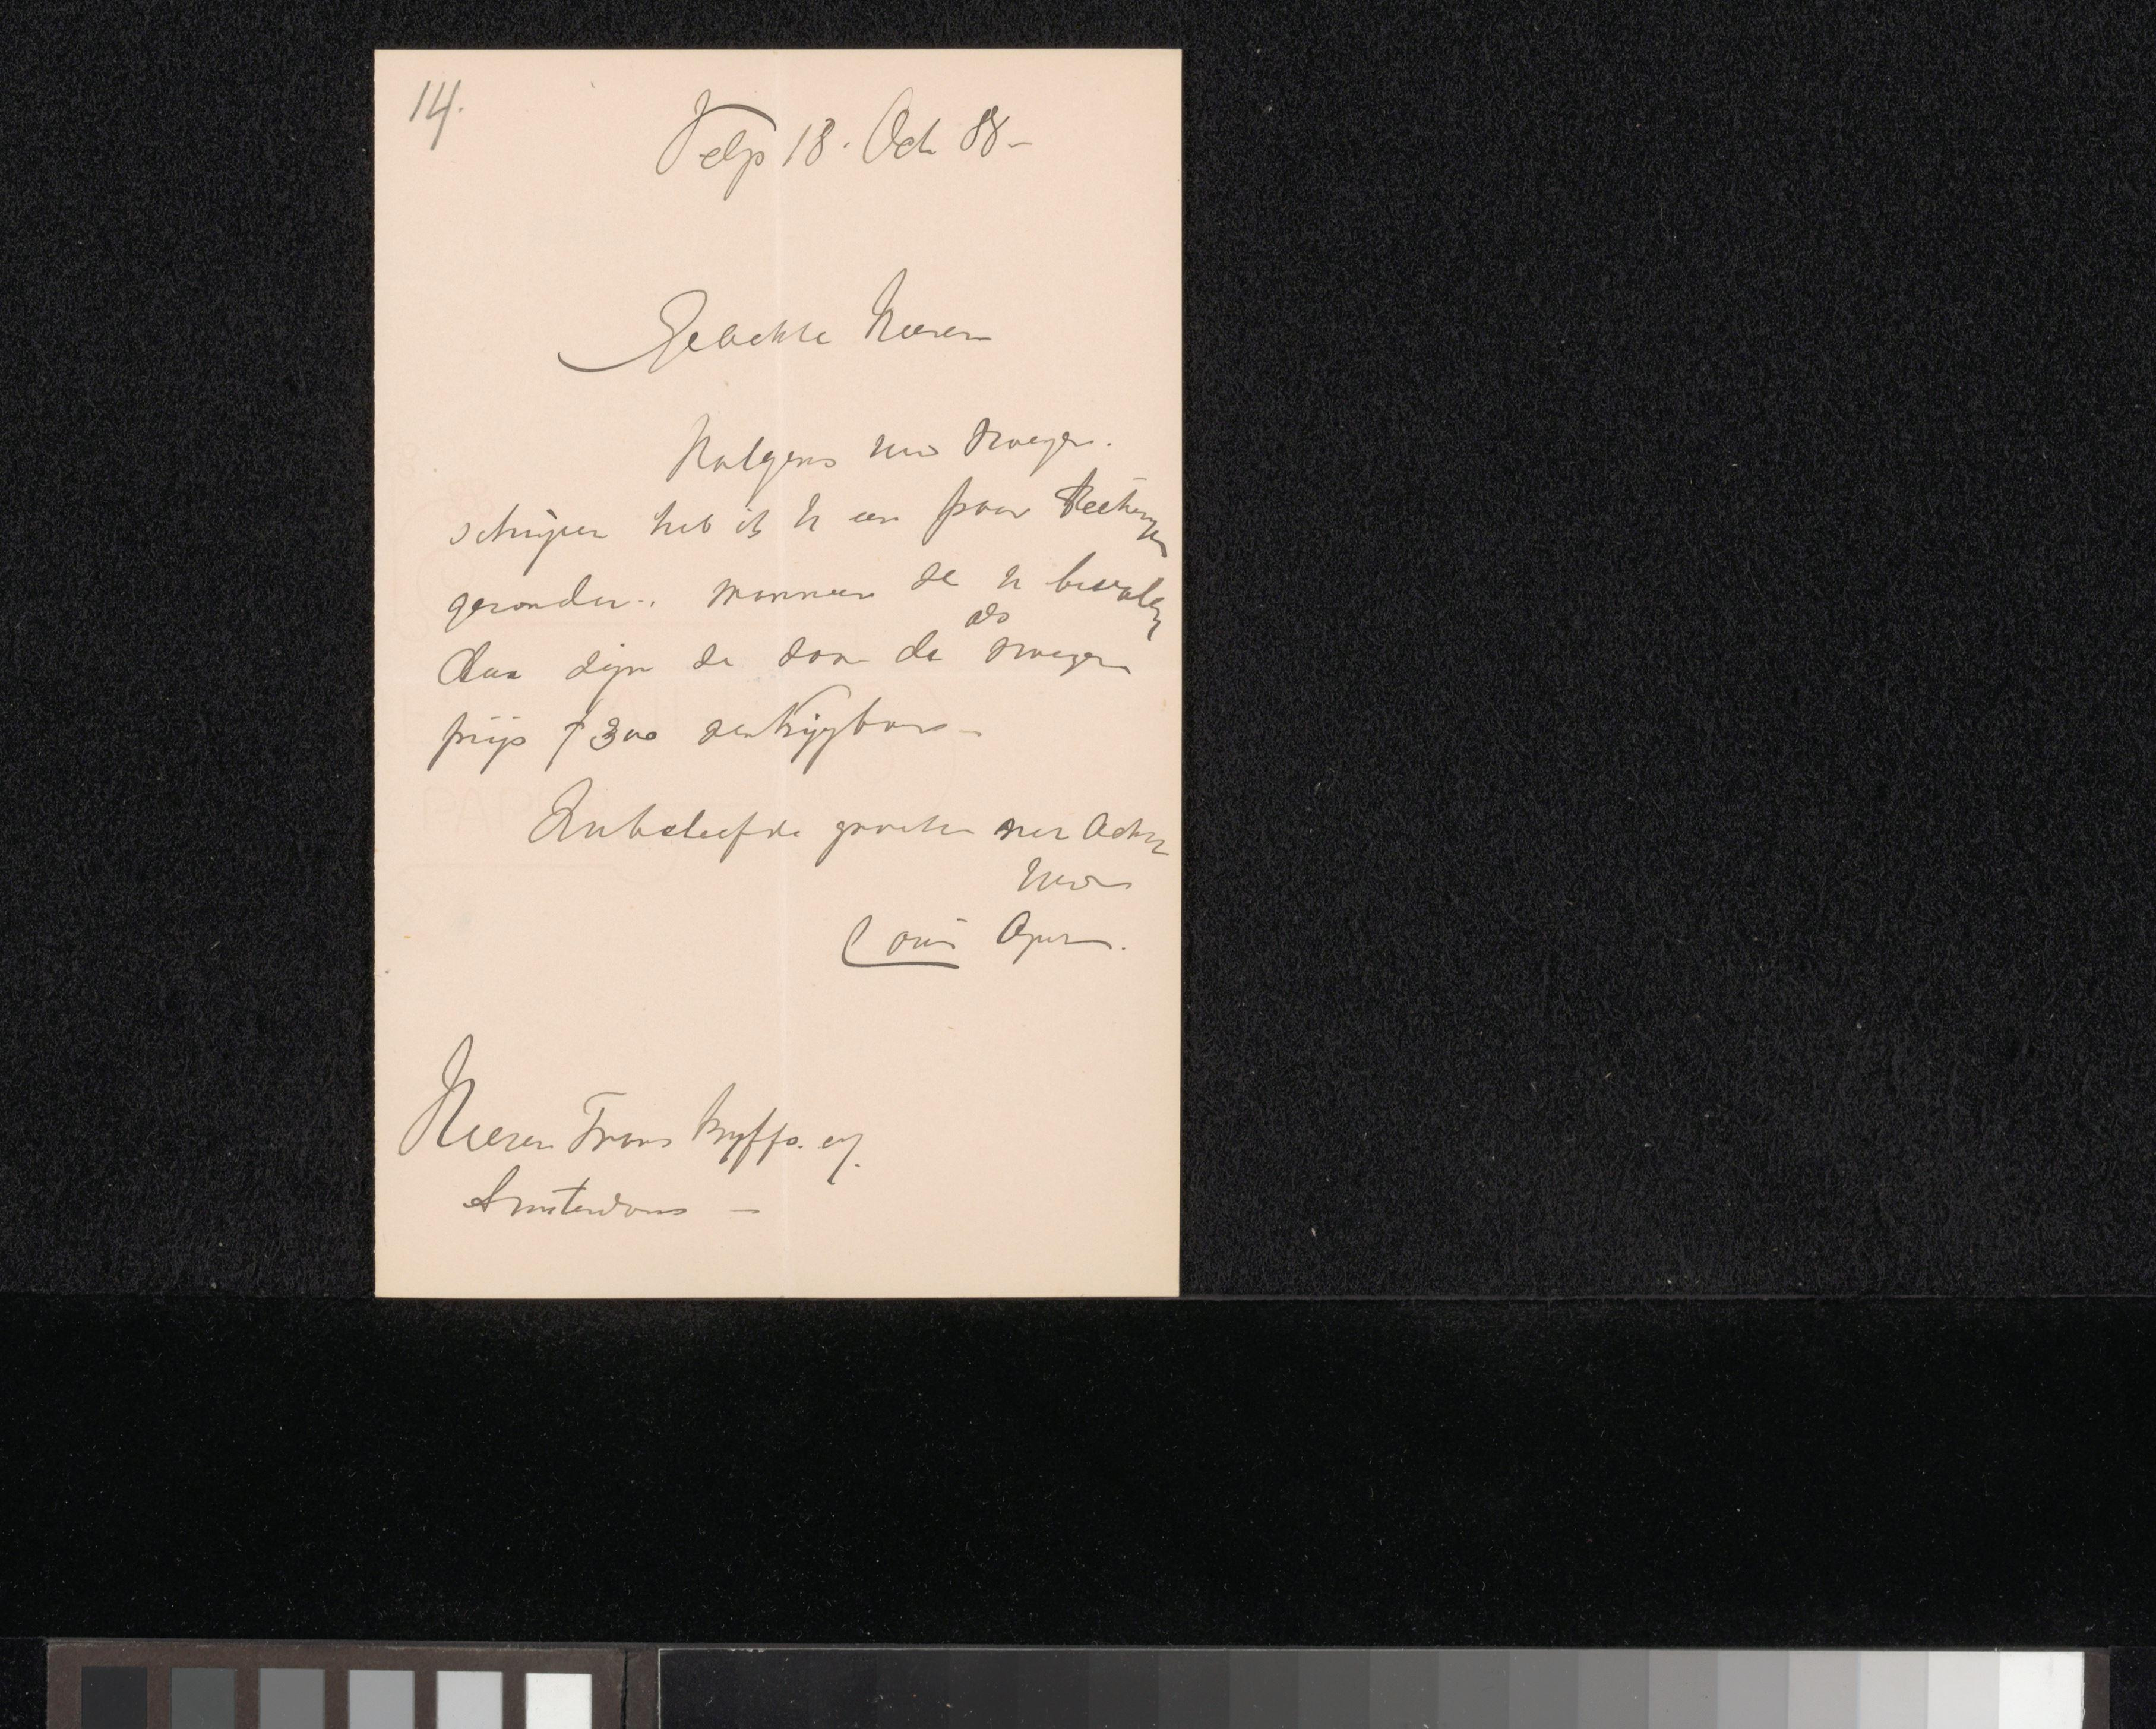 14.
Velp 18. Oct 88-
Geachte Heeren
Volgens uw
schrijven heb ik U een paar Teekeningen
gezonden. Wanneer ze U bevallen
dan zijn ze voor de als
prijs f 300 verkrijgbaar-
Na beleefde groeten met Achting
Uw
Louis Apol.
Heeren Frans Buffa. en
Amsterdam -